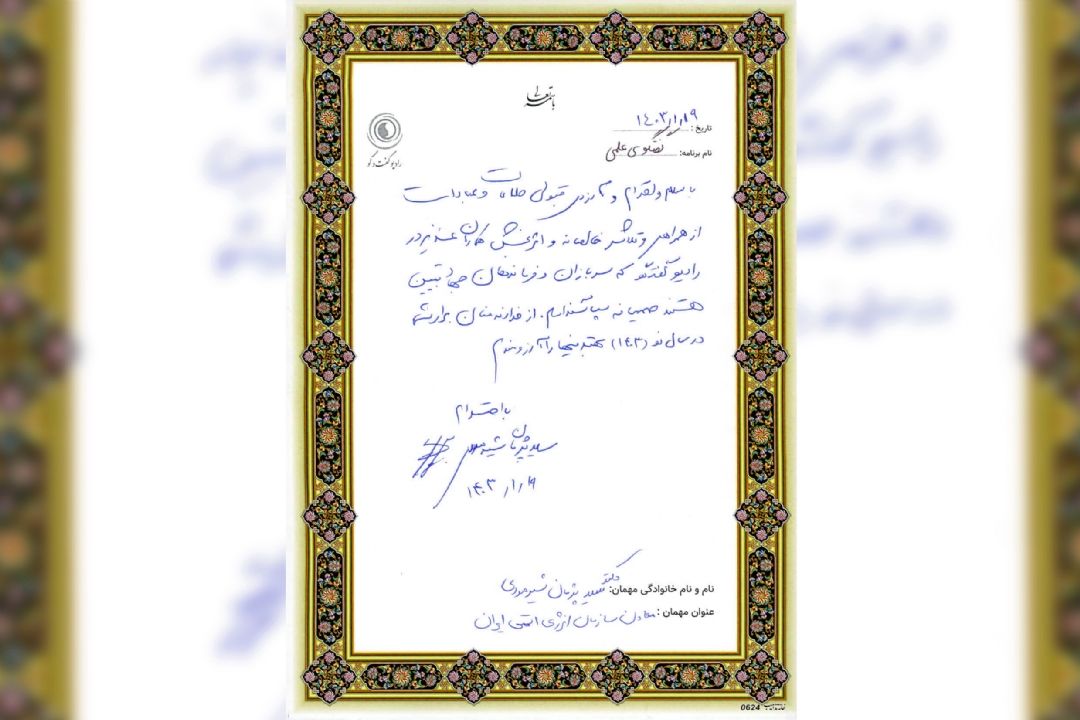 باسمه تعالی
تاریخ: ۱۴۰۳/۱/۱۹
نام برنامه: گفتگوی علمی
رادیو گفت و گو
با سلام و احترام و آرزوی قبولی طاعات و عبادات
از همراهی و تلاش خالصانه و اثربخش همکاران عزیز در
رادیو گفتگو که سربازان و فرماندهان جهاد تبیین
هستند صمیمانه سپاسگذارم. از خداوند منان برای شما
در سال نو (۱۴۰۳) بهترینها را آرزومندم
با احترام
سعید پژمان شیرمردی
۱۴۰۳/۱/۱۹
نام و نام خانوادگی مهمان: دکتر سعید پژمان شیرمردی
عنوان مهمان: معاون سازمان انرژی اتمی ایران
0624